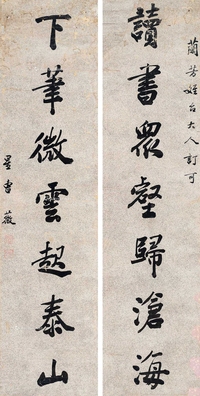 蘭芳姻台大人訂可
讀書衆壑歸滄海
下筆微雲起泰山